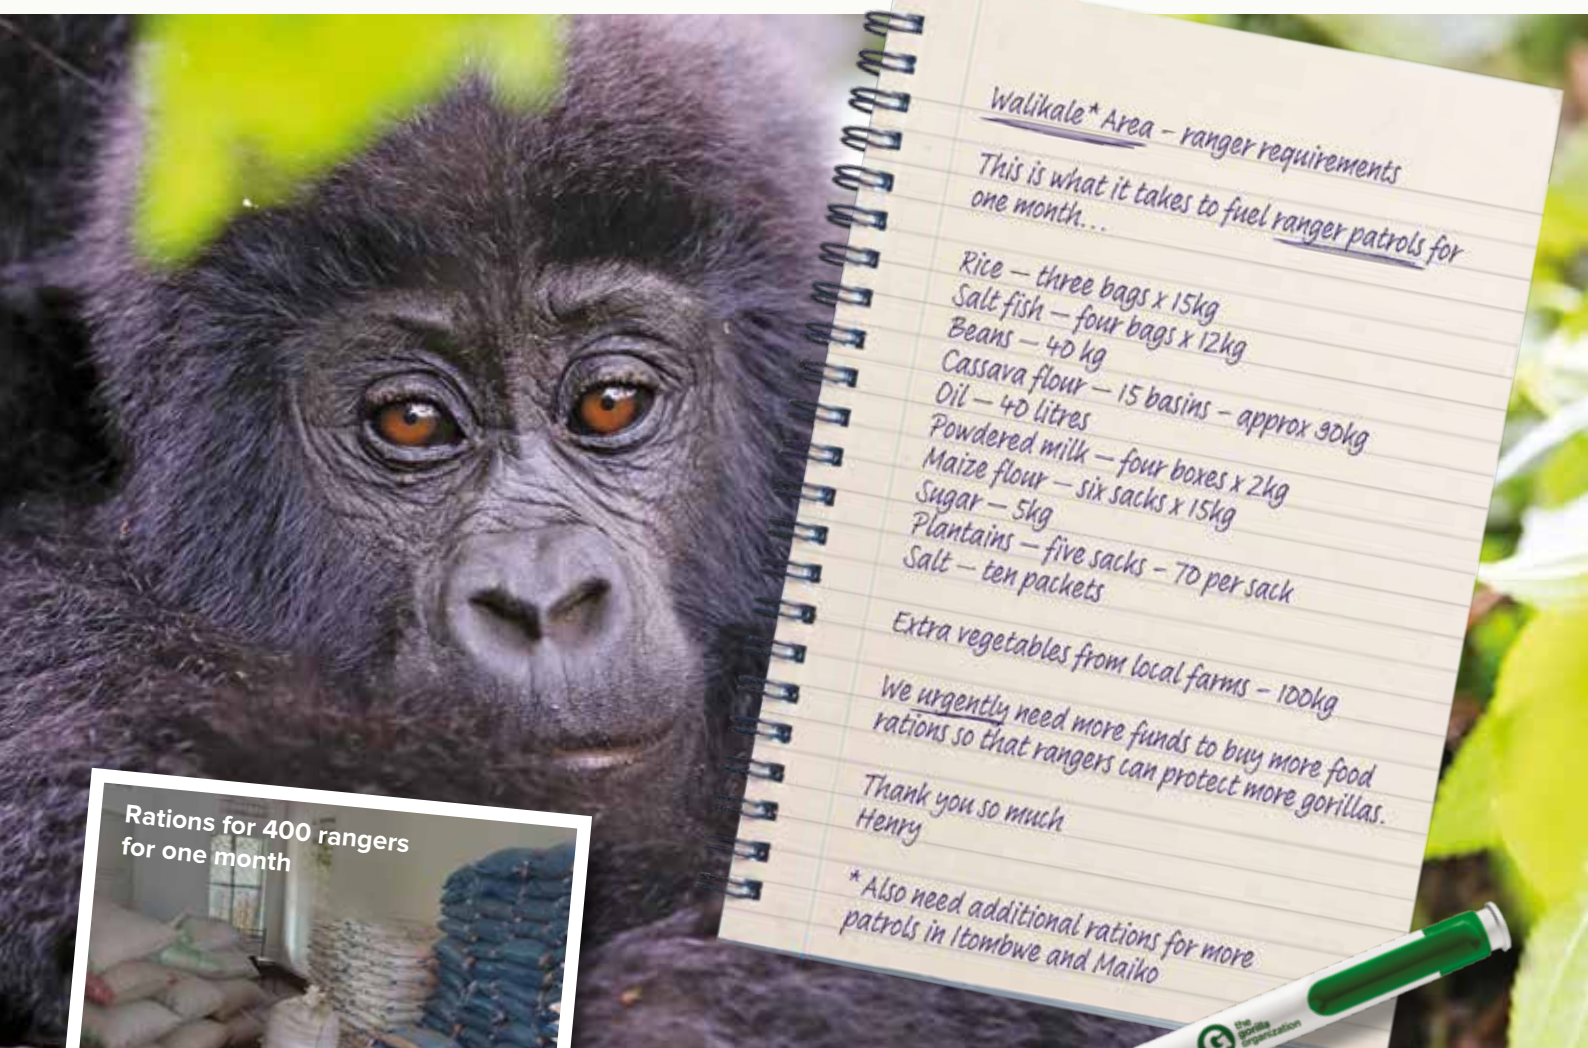 Walikale* Area – ranger requirements
This is what it takes to fuel ranger patrols for
one month...
Rice – three bags x 15kg
Salt fish – four bags x 12kg
Beans – 40 kg
Cassava flour – 15 basins – approx 30kg
Oil – 40 litres
Powdered milk – four boxes x 2kg
Maize flour – six sacks x 15kg
Sugar – 5kg
Plantains – five sacks – 70 per sack
Salt – ten packets
Extra vegetables from local farms – 100kg
We urgently need more funds to buy more food
rations so that rangers can protect more gorillas.
Thank you so much
Henry
*Also need additional rations for more
patrols in Itombwe and Maiko
Rations for 400 rangers
for one month
G
the
gorilla
organization